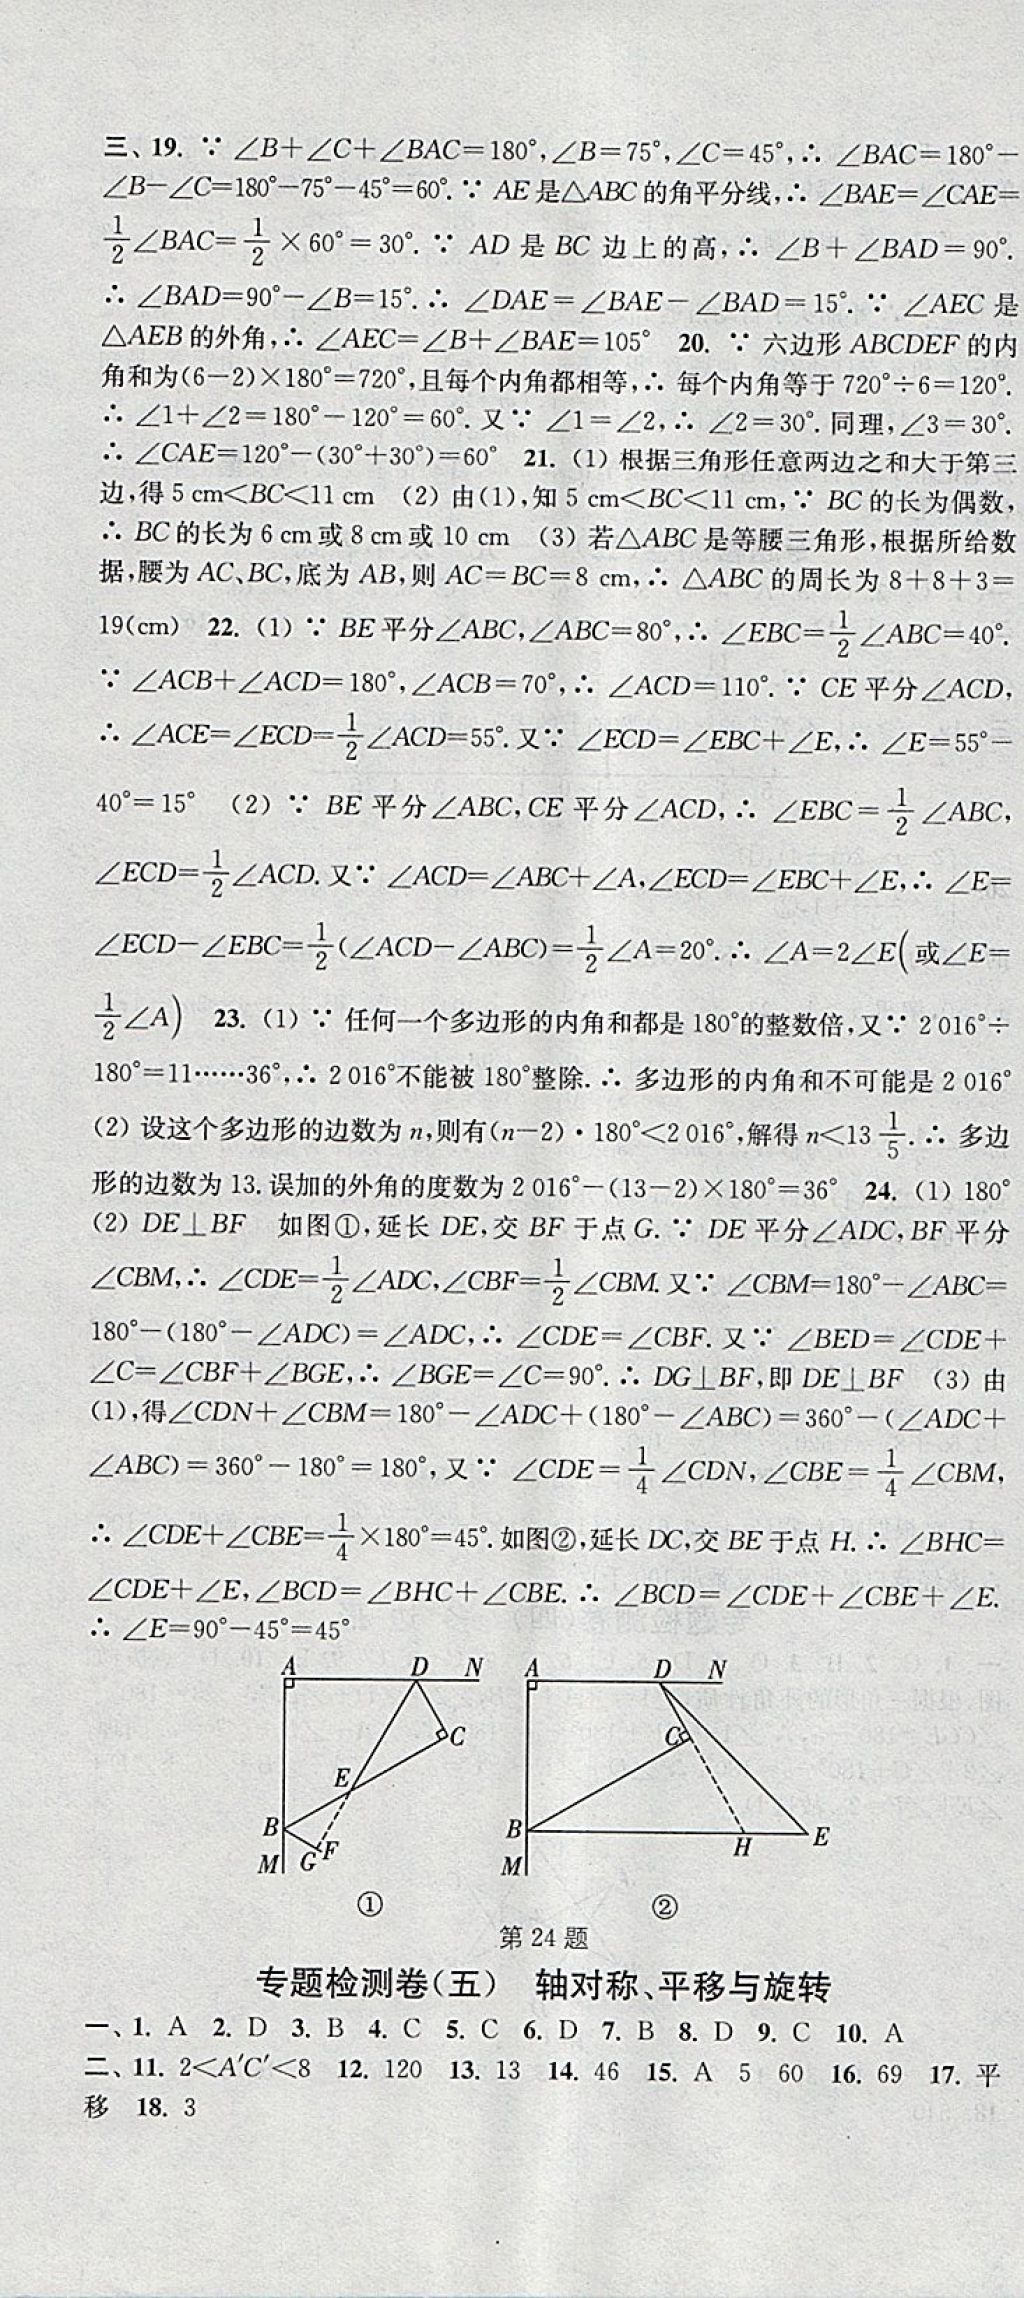 三、19. ∵ ∠B+∠C+∠BAC=180°,∠B=75°,∠C=45°,∴ ∠BAC=180°−
∠B−∠C=180°−75°−45°=60°. ∵ AE是△ABC的角平分线,∴ ∠BAE=∠CAE=
1/2∠BAC=1/2×60°=30°. ∵ AD 是 BC 边上的高,∴ ∠B+∠BAD=90°.
∴ ∠BAD=90°−∠B=15°. ∴ ∠DAE=∠BAE−∠BAD=15°. ∵ ∠AEC 是
△AEB的外角,∴ ∠AEC=∠B+∠BAE=105° 20. ∵ 六边形 ABCDEF 的内
角和为(6−2)×180°=720°,且每个内角都相等,∴ 每个内角等于720°÷6=120°.
∴ ∠1+∠2=180°−120°=60°. 又∵ ∠1=∠2,∴ ∠2=30°. 同理,∠3=30°.
∴ ∠CAE=120°−(30°+30°)=60° 21. (1) 根据三角形任意两边之和大于第三
边,得 5 cm<BC<11 cm (2) 由(1),知 5 cm<BC<11 cm,∵ BC的长为偶数,
∴ BC的长为 6 cm或 8 cm或 10 cm (3) 若△ABC 是等腰三角形,根据所给数
据,腰为 AC、BC,底为 AB,则 AC=BC=8 cm,∴ △ABC 的周长为 8+8+3=
19(cm) 22. (1) ∵ BE平分∠ABC,∠ABC=80°,∴ ∠EBC=1/2∠ABC=40°.
∵ ∠ACB+∠ACD=180°,∠ACB=70°,∴ ∠ACD=110°. ∵ CE 平分∠ACD,
∴ ∠ACE=∠ECD=1/2∠ACD=55°. 又∵ ∠ECD=∠EBC+∠E,∴ ∠E=55°−
40°=15° (2) ∵ BE 平分∠ABC,CE 平分∠ACD,∴ ∠EBC=1/2∠ABC,
∠ECD=1/2∠ACD. 又∵ ∠ACD=∠ABC+∠A,∠ECD=∠EBC+∠E,∴ ∠E=
∠ECD−∠EBC=1/2(∠ACD−∠ABC)=1/2∠A=20°. ∴ ∠A=2∠E(或∠E=
1/2∠A) 23. (1) ∵ 任何一个多边形的内角和都是180°的整数倍,又∵ 2 016°÷
180°=11……36°,∴ 2 016°不能被 180°整除. ∴ 多边形的内角和不可能是 2 016°
(2) 设这个多边形的边数为 n,则有(n−2)·180°<2 016°,解得 n<13 1/5. ∴ 多边
形的边数为 13. 误加的外角的度数为 2 016°−(13−2)×180°=36° 24. (1) 180°
(2) DE⊥BF 如图①,延长 DE,交 BF 于点 G. ∵ DE 平分∠ADC,BF 平分
∠CBM,∴ ∠CDE=1/2∠ADC,∠CBF=1/2∠CBM. 又∵ ∠CBM=180°−∠ABC=
180°−(180°−∠ADC)=∠ADC,∴ ∠CDE=∠CBF. 又∵ ∠BED=∠CDE+
∠C=∠CBF+∠BGE,∴ ∠BGE=∠C=90°. ∴ DG⊥BF,即 DE⊥BF (3) 由
(1),得∠CDN+∠CBM=180°−∠ADC+(180°−∠ABC)=360°−(∠ADC+
∠ABC)=360°−180°=180°,又∵ ∠CDE=1/4∠CDN,∠CBE=1/4∠CBM,
∴ ∠CDE+∠CBE=1/4×180°=45°. 如图②,延长 DC,交 BE于点 H. ∴ ∠BHC=
∠CDE+∠E,∠BCD=∠BHC+∠CBE. ∴ ∠BCD=∠CDE+∠CBE+∠E.
∴ ∠E=90°−45°=45°
A D N A D N
C C
E
B B
G F H E
M M
① ②
第24题
专题检测卷(五) 轴对称、平移与旋转
一、1. A 2. D 3. B 4. C 5. C 6. D 7. B 8. D 9. C 10. A
二、11. 2<A′C′<8 12. 120 13. 13 14. 46 15. A 5 60 16. 69 17. 平
移 18. 3